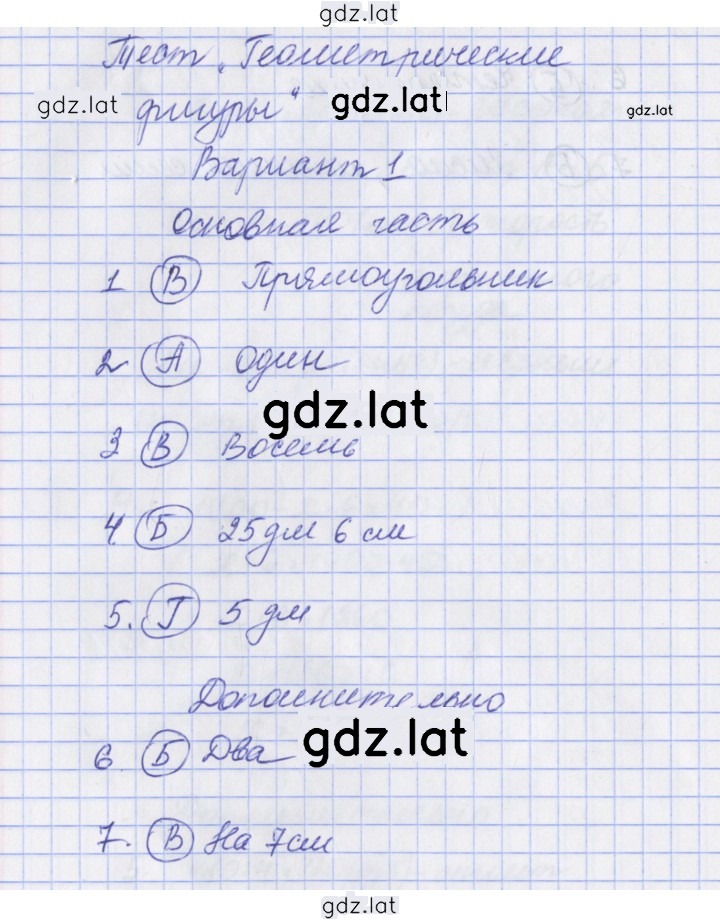 gdz.lat
Тест „Геометрические
gdz.lat gdz.lat gdz.lat
фигуры“
Вариант 1
Основная часть
1 В Прямоугольник
2 А Один
gdz.lat
3 В Восемь
4. Б 25дм 6 см
5. Г 5 дм
Дополнительно
gdz.lat
6 Б Два
7. В На 7см
gdz.lat